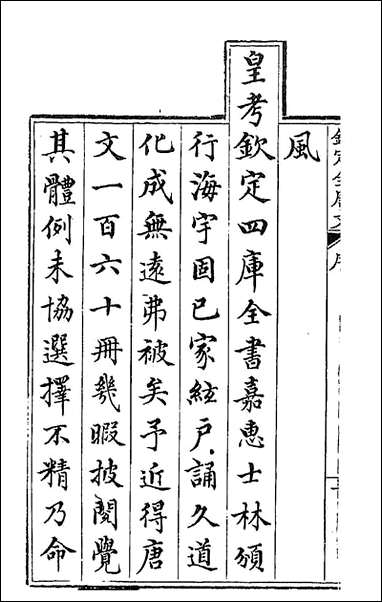 欽定全唐文
序
風
皇考欽定四庫全書嘉惠士林頒
行海宇固已家絃戶誦久道
化成無遠弗被矣予近得唐
文一百六十冊幾暇披閱覺
其體例未協選擇不精乃命